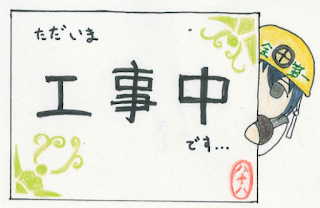 ただいま
工事中
です…
安全第一
八十八